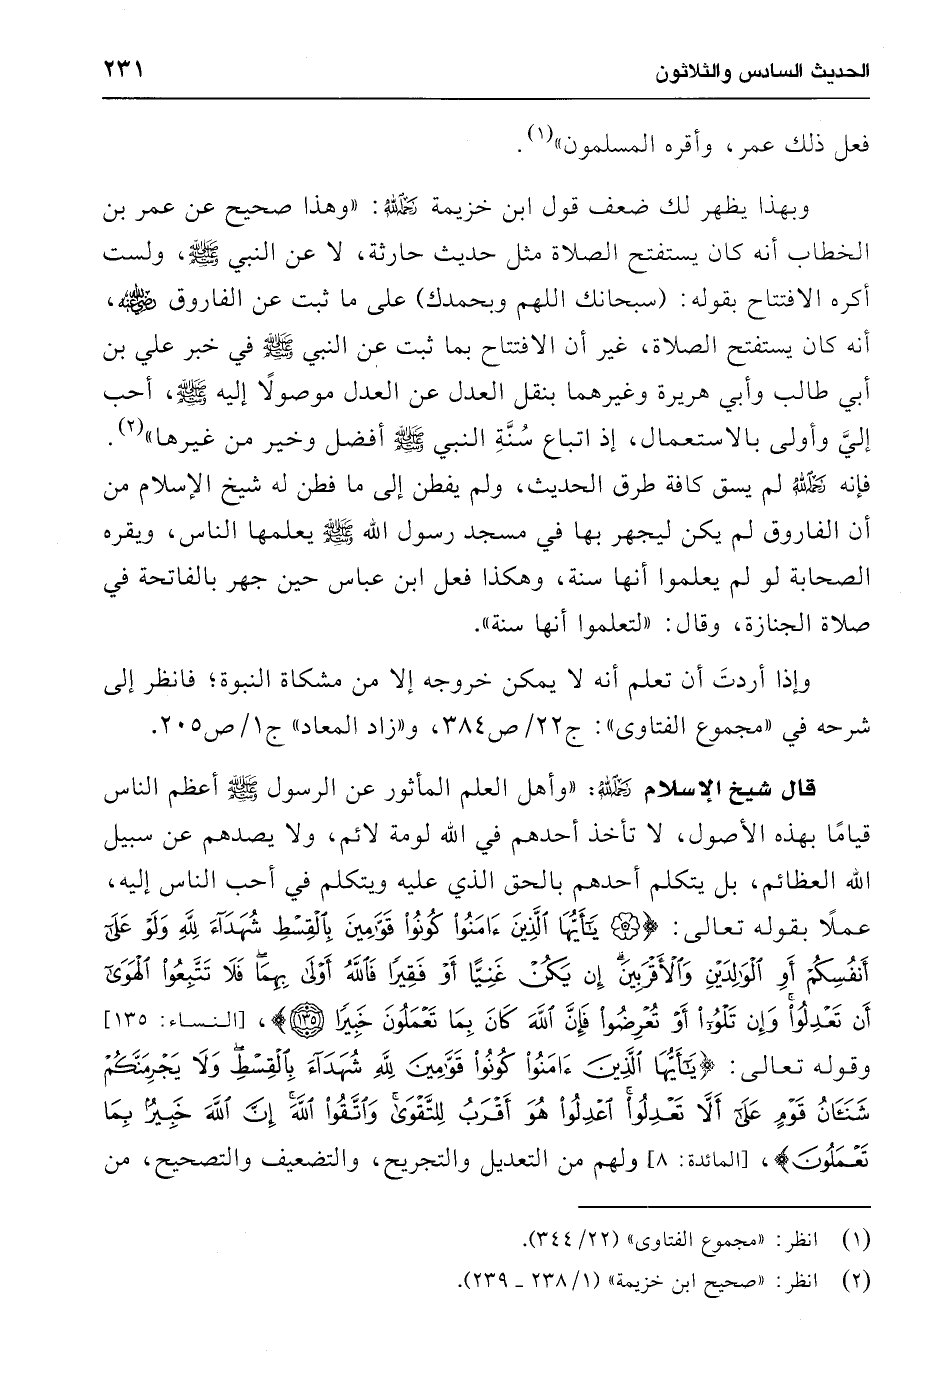 الحديث السادس والثلاثون ٢٣١
فعل ذلك عمر، وأقره المسلمون»(١).
وبهذا يظهر لك ضعف قول ابن خزيمة رَحِمَهُ اللهُ: «وهذا صحيح عن عمر بن
الخطاب أنه كان يستفتح الصلاة مثل حديث حارثة، لا عن النبي ﷺ، ولست
أكره الافتتاح بقوله: (سبحانك اللهم وبحمدك) على ما ثبت عن الفاروق رَضِيَ اللهُ عَنْهُ،
أنه كان يستفتح الصلاة، غير أن الافتتاح بما ثبت عن النبي ﷺ في خبر علي بن
أبي طالب وأبي هريرة وغيرهما بنقل العدل عن العدل موصولًا إليه ﷺ، أحب
إليَّ وأولى بالاستعمال، إذ اتباع سُنَّةِ النبي ﷺ أفضل وخير من غيرها»(٢).
فإنه رَحِمَهُ اللهُ لم يسق كافة طرق الحديث، ولم يفطن إلى ما فطن له شيخ الإسلام من
أن الفاروق لم يكن ليجهر بها في مسجد رسول الله ﷺ يعلمها الناس، ويقره
الصحابة لو لم يعلموا أنها سنة، وهكذا فعل ابن عباس حين جهر بالفاتحة في
صلاة الجنازة، وقال: «لتعلموا أنها سنة».
وإذا أردتَ أن تعلم أنه لا يمكن خروجه إلا من مشكاة النبوة؛ فانظر إلى
شرحه في «مجموع الفتاوى»: ج٢٢/ ص٣٨٤، و«زاد المعاد» ج١/ ص٢٠٥.
قال شيخ الإسلام رَحِمَهُ اللهُ: «وأهل العلم المأثور عن الرسول ﷺ أعظم الناس
قيامًا بهذه الأصول، لا تأخذ أحدهم في الله لومة لائم، ولا يصدهم عن سبيل
الله العظائم، بل يتكلم أحدهم بالحق الذي عليه ويتكلم في أحب الناس إليه،
عملًا بقوله تعالى: ﴿۞ يَـٰٓأَيُّهَا ٱلَّذِينَ ءَامَنُوا۟ كُونُوا۟ قَوَّٰمِينَ بِٱلْقِسْطِ شُهَدَآءَ لِلَّهِ وَلَوْ عَلَىٰٓ
أَنفُسِكُمْ أَوِ ٱلْوَٰلِدَيْنِ وَٱلْأَقْرَبِينَ ۚ إِن يَكُنْ غَنِيًّا أَوْ فَقِيرًا فَٱللَّهُ أَوْلَىٰ بِهِمَا ۖ فَلَا تَتَّبِعُوا۟ ٱلْهَوَىٰٓ
أَن تَعْدِلُوا۟ ۚ وَإِن تَلْوُۥٓا۟ أَوْ تُعْرِضُوا۟ فَإِنَّ ٱللَّهَ كَانَ بِمَا تَعْمَلُونَ خَبِيرًا ١٣٥﴾، [النساء: ١٣٥]
وقوله تعالى: ﴿يَـٰٓأَيُّهَا ٱلَّذِينَ ءَامَنُوا۟ كُونُوا۟ قَوَّٰمِينَ لِلَّهِ شُهَدَآءَ بِٱلْقِسْطِ ۖ وَلَا يَجْرِمَنَّكُمْ
شَنَـَٔانُ قَوْمٍ عَلَىٰٓ أَلَّا تَعْدِلُوا۟ ۚ ٱعْدِلُوا۟ هُوَ أَقْرَبُ لِلتَّقْوَىٰ ۖ وَٱتَّقُوا۟ ٱللَّهَ ۚ إِنَّ ٱللَّهَ خَبِيرٌۢ بِمَا
تَعْمَلُونَ﴾، [المائدة: ٨] ولهم من التعديل والتجريح، والتضعيف والتصحيح، من
(١) انظر: «مجموع الفتاوى» (٢٢/ ٣٤٤).
(٢) انظر: «صحيح ابن خزيمة» (١/ ٢٣٨ ـ ٢٣٩).